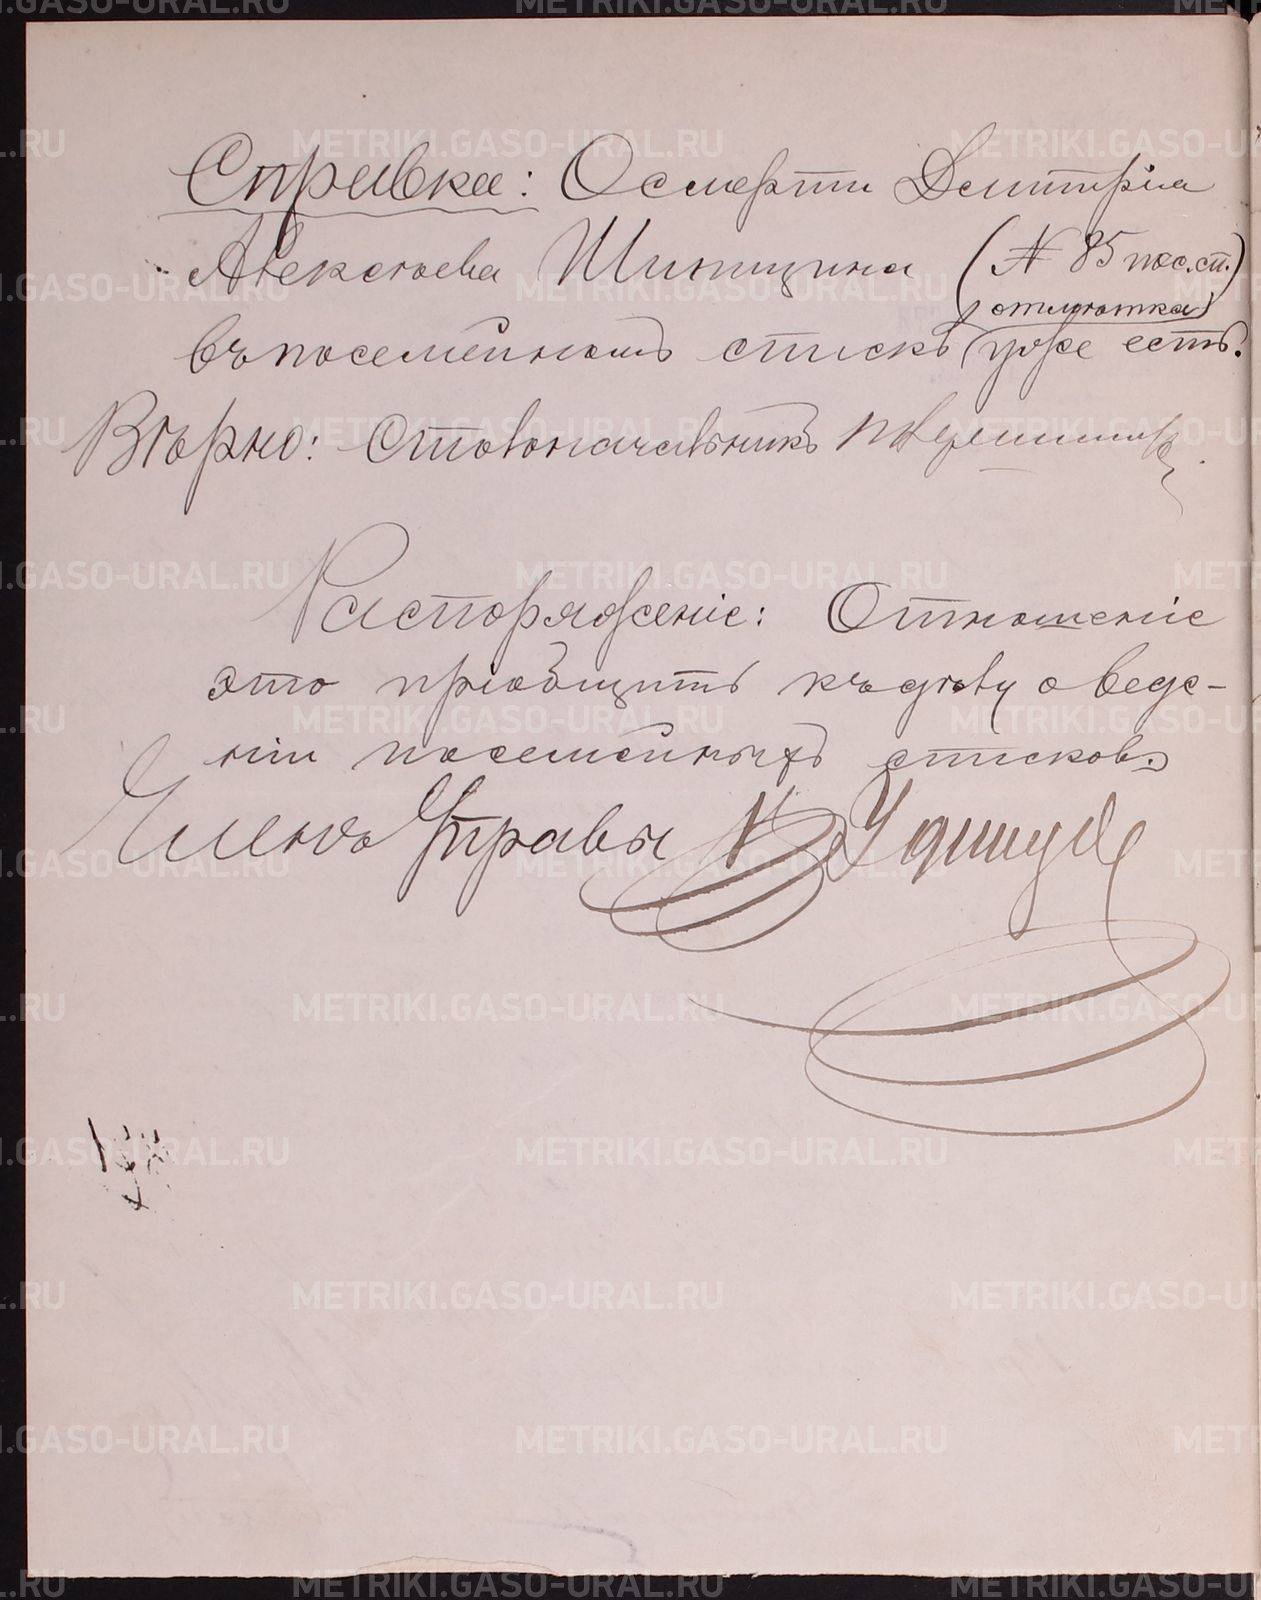 Справка: О смерти Дмитрія
Алексѣева Шипицина (№ 85 пос. сп.)
въ посемейномъ спискѣ отмѣтка уже есть.
Вѣрно: Столоначальникъ
Распоряженіе: Отношеніе
это пріобщить къ дѣлу о веде-
ніи посемейныхъ списковъ.
Членъ Управы